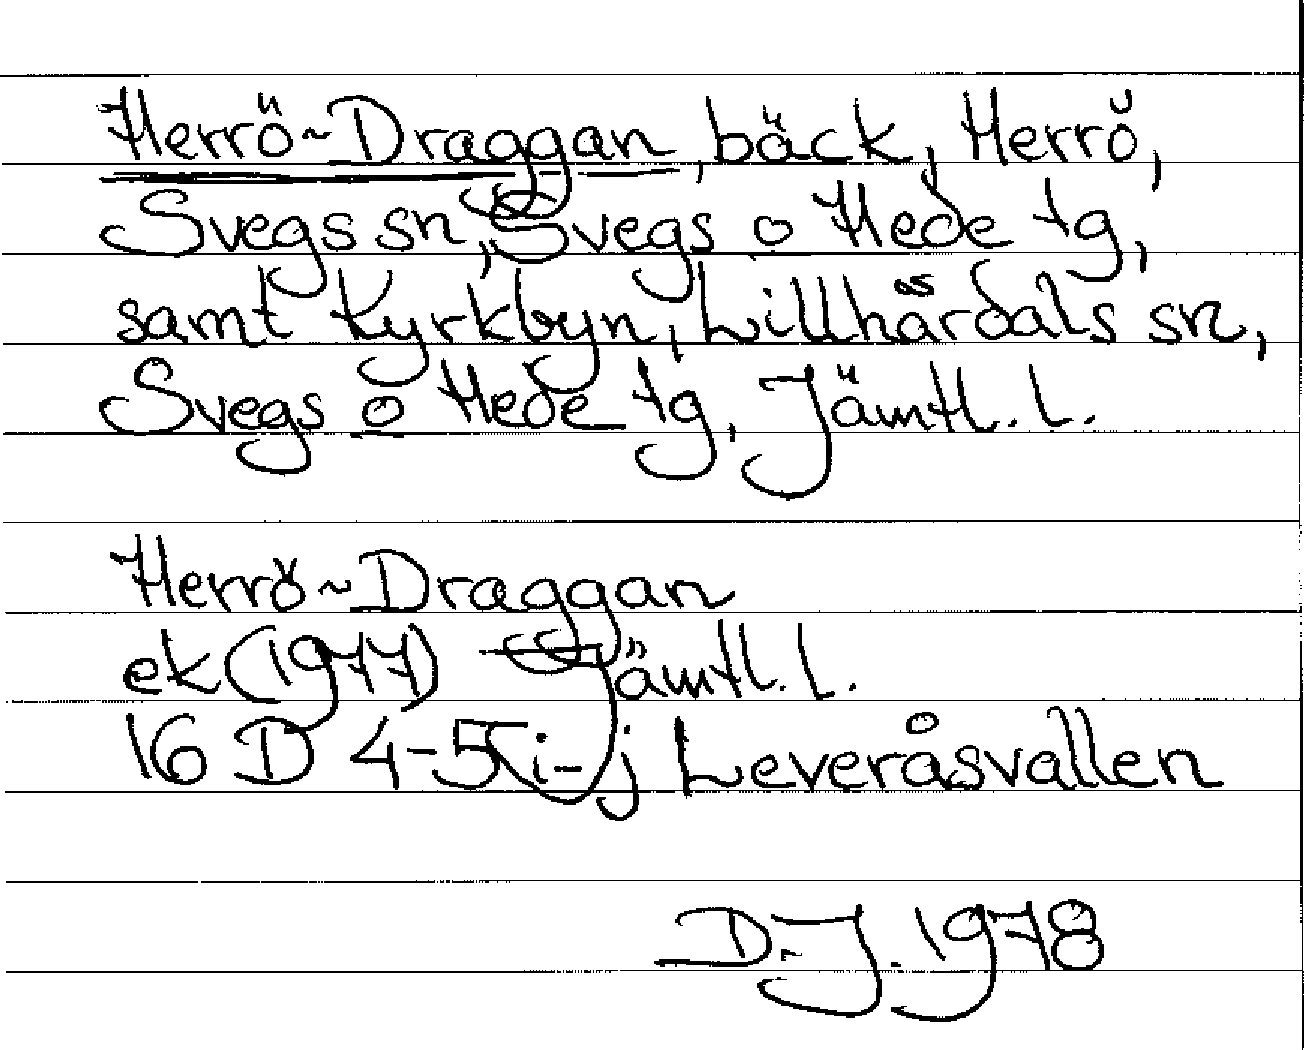 Herrö-Draggan, bäck, Herrö,
Svegs sn, Svegs o Hede tg,
samt Kyrkbyn, Lillhärdals sn,
Svegs o Hede tg, Jämtl. l.
Herrö-Draggan
ek (1977) Jämtl. l.
16 D 4-5 i-j Leveråsvallen
D.J. 1978